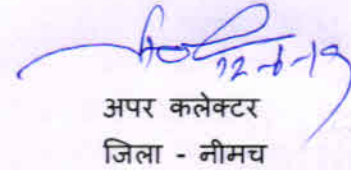 12-6-19
अपर कलेक्टर
जिला - नीमच